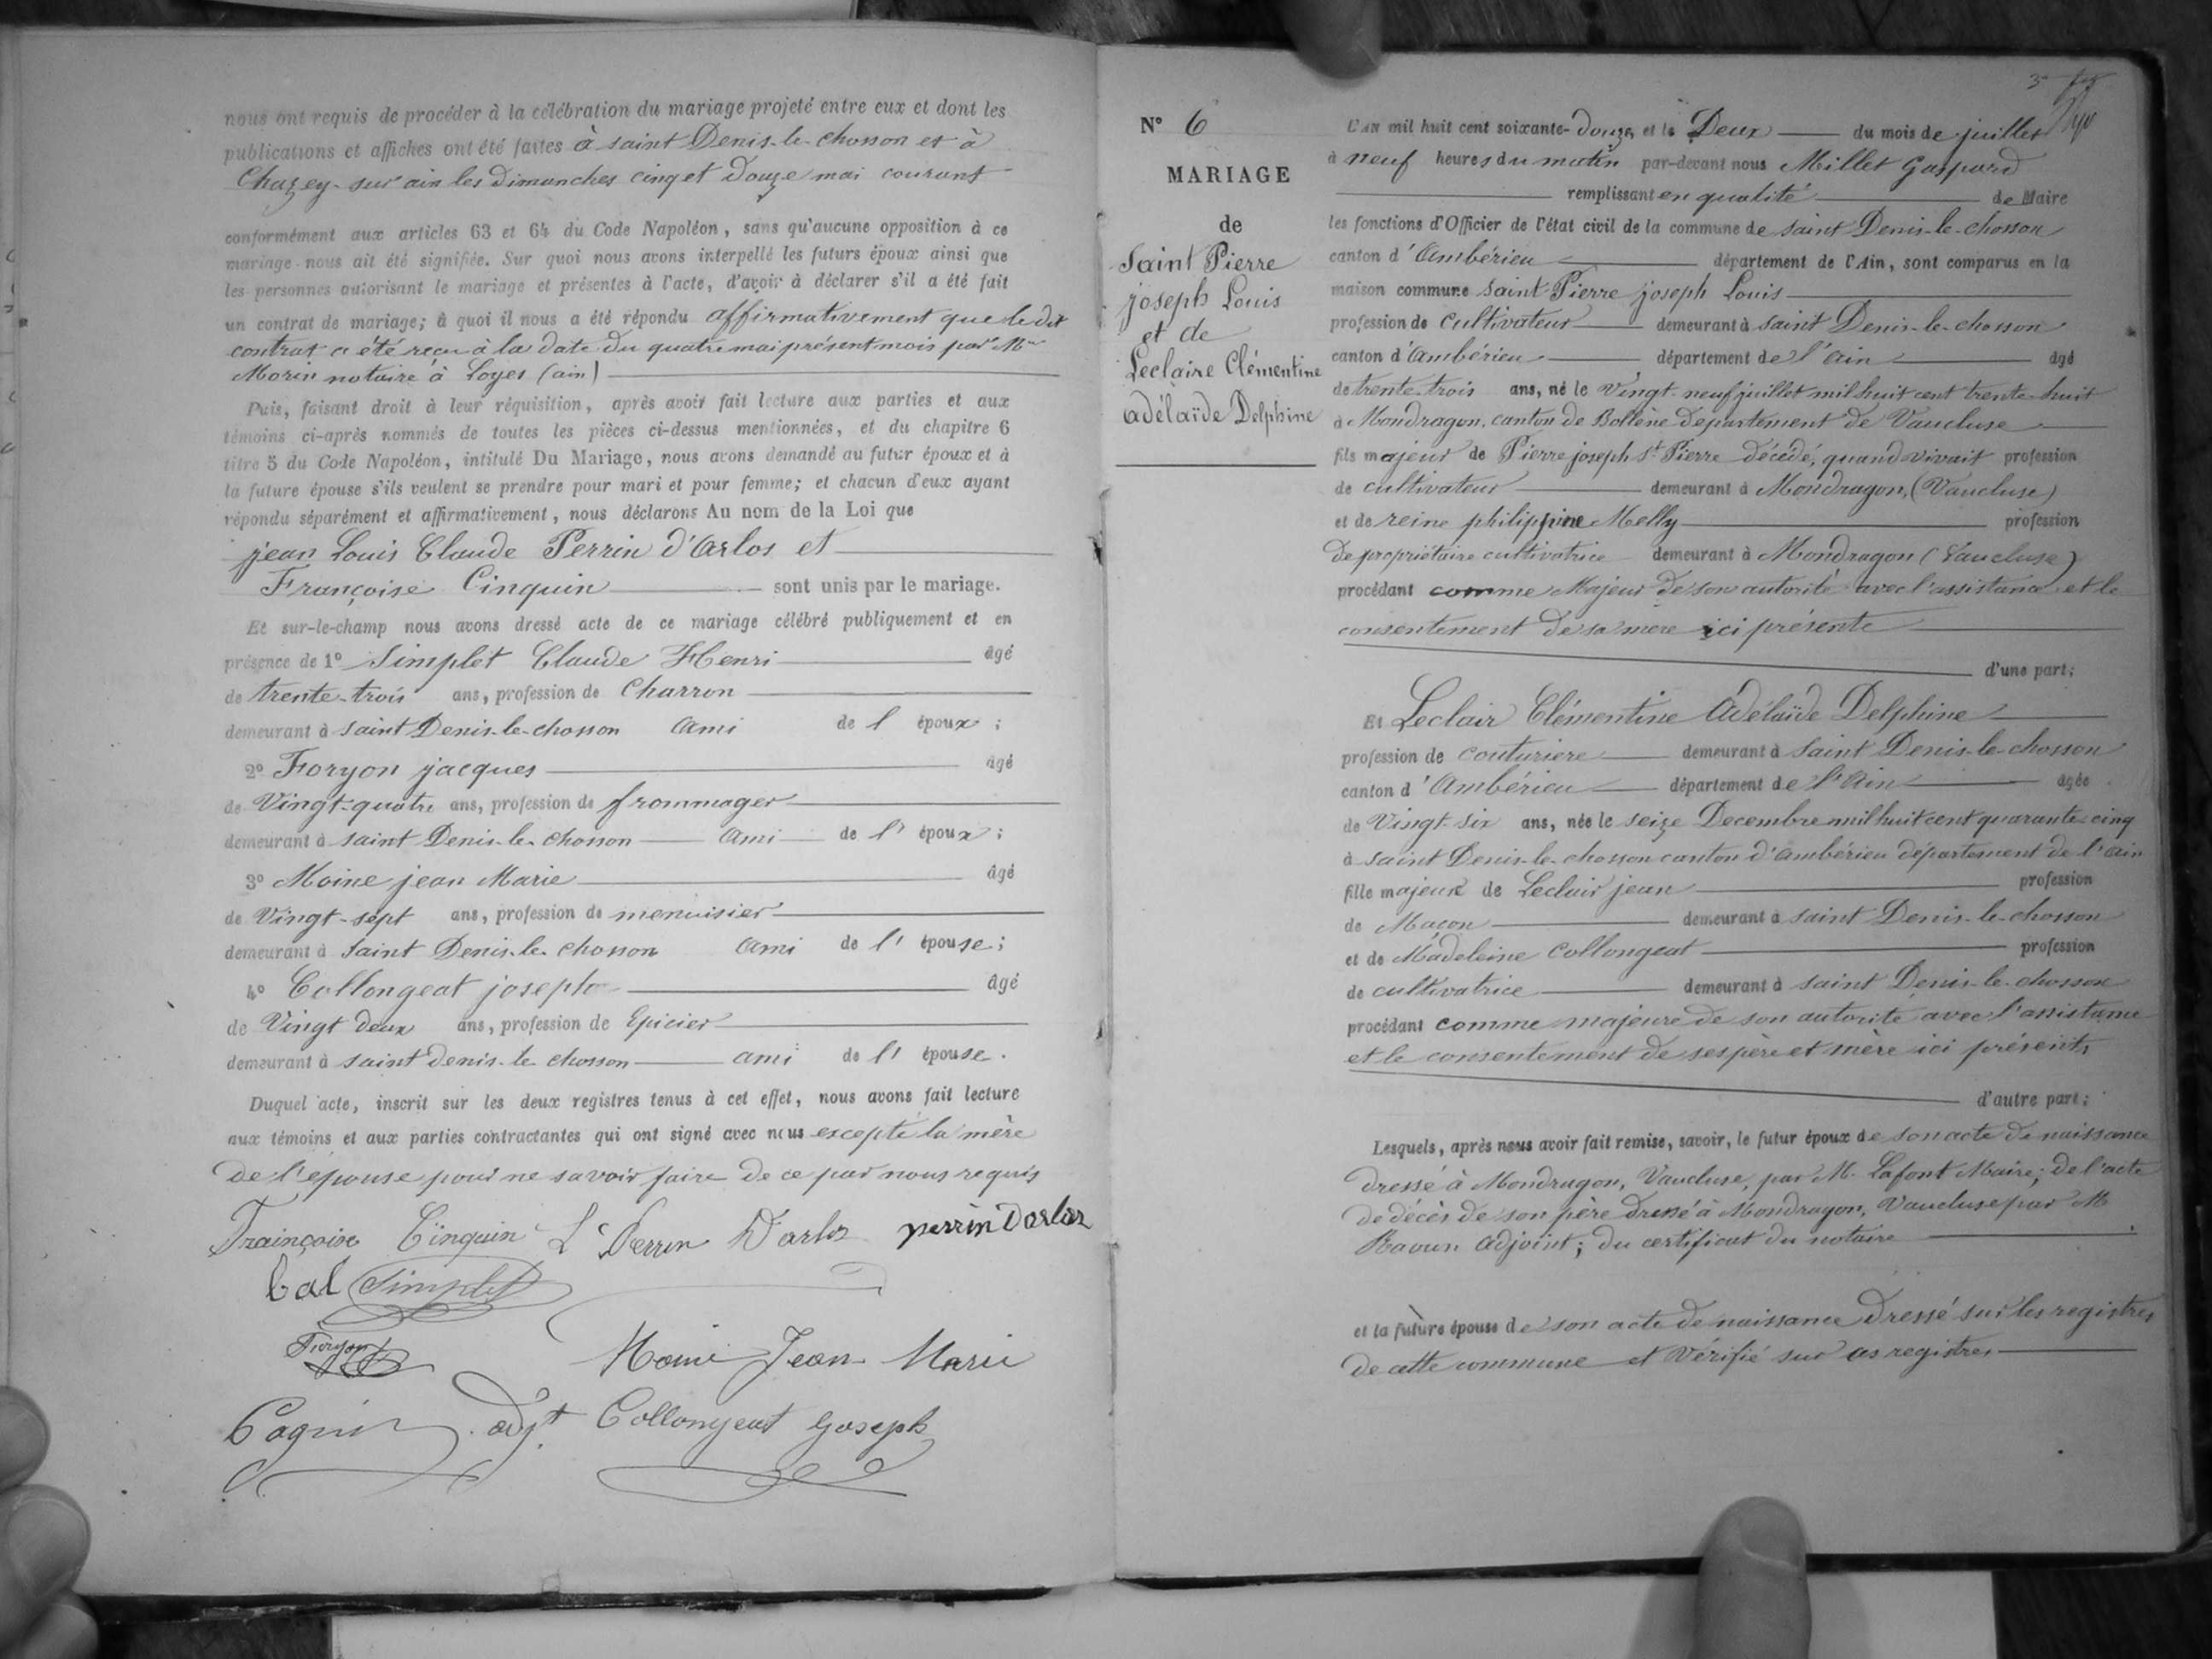 nous ont requis de procéder à la célébration du mariage projeté entre eux et dont les
publications et affiches ont été faites à saint Denis-le-chosson et à
Chazey-sur ain les Dimanches cinq et Douze mai courant
conformément aux articles 63 et 64 du Code Napoléon, sans qu'aucune opposition à ce
mariage nous ait été signifiée. Sur quoi nous avons interpellé les futurs époux ainsi que
les personnes autorisant le mariage et présentes à l'acte, d'avoir à déclarer s'il a été fait
un contrat de mariage; à quoi il nous a été répondu affirmativement que le dit
contrat a été reçu à la date du quatre mai présent mois par Me
Morin notaire à Loyes (ain)
Puis, faisant droit à leur réquisition, après avoir fait lecture aux parties et aux
témoins ci-après nommés de toutes les pièces ci-dessus mentionnées, et du chapitre 6
titre 5 du Code Napoléon, intitulé Du Mariage, nous avons demandé au futur époux et à
la future épouse s'ils veulent se prendre pour mari et pour femme; et chacun d'eux ayant
répondu séparément et affirmativement, nous déclarons Au nom de la Loi que
jean Louis Claude Perrin d'Arlos et
Françoise Cinquin sont unis par le mariage.
Et sur-le-champ nous avons dressé acte de ce mariage célébré publiquement et en
présence de 1º Simplet Claude Henri âgé
de trente-trois ans, profession de Charron
demeurant à saint Denis-le-chosson ami de l époux;
2º Foryon jacques âgé
de Vingt-quatre ans, profession de frommager
demeurant à saint Denis-le-chosson ami de l' époux;
3º Moine jean Marie âgé
de Vingt-sept ans, profession de menuisier
demeurant à saint Denis-le-chosson ami de l' épouse;
4º Collongeat joseph âgé
de Vingt deux ans, profession de Epicier
demeurant à saint denis-le chosson ami de l' épouse.
Duquel acte, inscrit sur les deux registres tenus à cet effet, nous avons fait lecture
aux témoins et aux parties contractantes qui ont signé avec nous excepté la mère
de l'épouse pour ne savoir faire de ce par nous requis
Françoise Cinquin L Perrin D'arlos perrin Darlos
Cal Simplet
Foryon Moine Jean Marie
adjt Collongeat Joseph
Nº 6
MARIAGE
de
Saint Pierre
joseph Louis
et de
Leclaire Clémentine
adélaïde Delphine
L'AN mil huit cent soixante-douze et le Deux du mois de juillet
à neuf heures du matin par-devant nous Millet Gaspard
remplissant en qualité de Maire
les fonctions d'Officier de l'état civil de la commune de saint Denis-le-chosson
canton d'Ambérieu département de l'Ain, sont comparus en la
maison commune Saint-Pierre joseph Louis
profession de cultivateur demeurant à saint Denis-le-chosson
canton d'Ambérieu département de l'ain âgé
de trente trois ans, né le Vingt-neuf juillet mil huit cent trente huit
à Mondragon, canton de Bollène département de Vaucluse
fils majeur de Pierre joseph St Pierre décédé, quand vivait profession
de cultivateur demeurant à Mondragon, (Vaucluse)
et de reine philippine Melly profession
de propriétaire cultivatrice demeurant à Mondragon (Vaucluse)
procédant comme Majeur de son autorité avec l'assistance et le
consentement de sa mère ici présente
d'une part;
Et Leclair Clémentine Adélaïde Delphine
profession de couturiere demeurant à saint Denis-le-chosson
canton d'Ambérieu département de l'Ain âgée
de Vingt-six ans, née le seize Decembre mil huit cent quarante cinq
à saint Denis-le-chosson canton d'ambérieu département de l'ain
fille majeure de Leclair jean profession
de Maçon demeurant à saint Denis-le-chosson
et de Madeleine Collongeat profession
de cultivatrice demeurant à saint Denis-le-chosson
procédant comme majeure de son autorité avec l'assistance
et le consentement de ses père et mère ici présents
d'autre part;
Lesquels, après nous avoir fait remise, savoir, le futur époux de son acte de naissance
dressé à Mondragon, Vaucluse, par M. Lafont Maire; de l'acte
de décès de son père dressé à Mondragon, Vaucluse par M
Ravun adjoint; du certificat du notaire
et la future épouse de son acte de naissance dressé sur les registres
de cette commune et vérifié sur ces registres